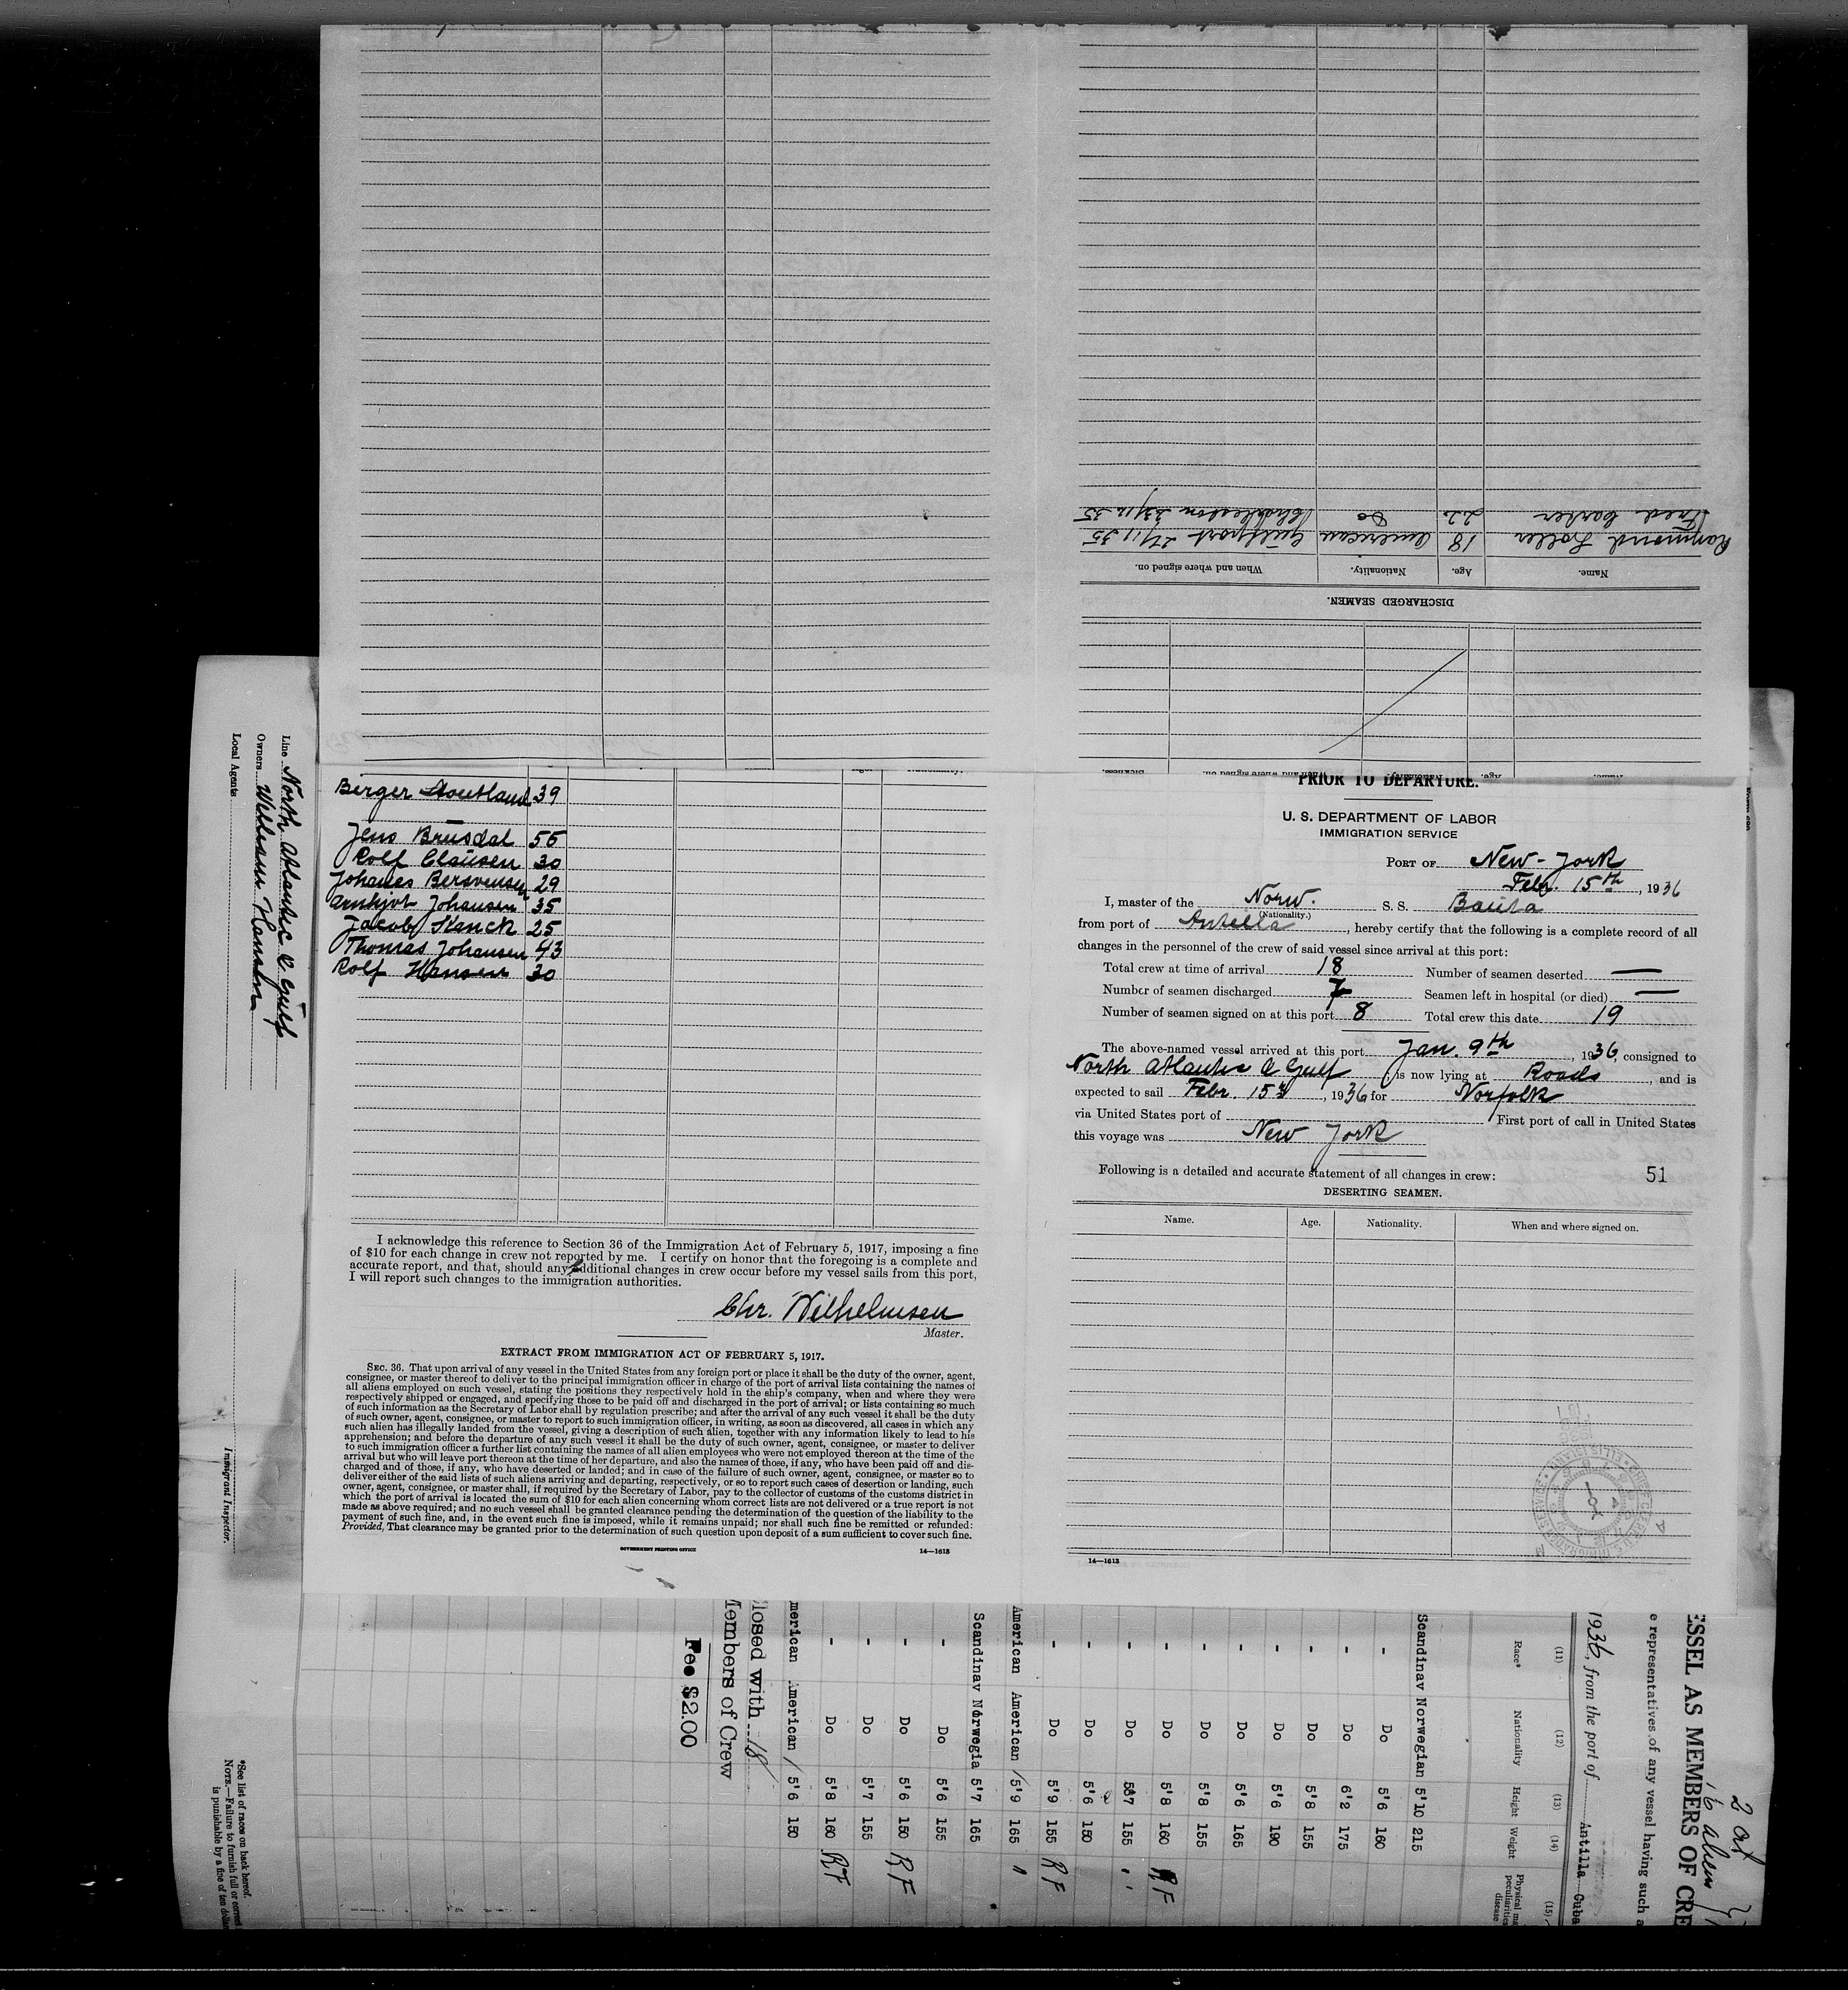 Raymond Loller 18 American Gulfport 27/11 35
Fred Carter 22 Do Charleston 23/12 35
Name. Age. Nationality. When and where signed on.
DISCHARGED SEAMEN.
Name. Age. Nationality. When and where signed on. Sickness.
Line North Atlantic & Gulf
Owners Wilhelm Hansen
Local Agents
Immigrant Inspector.
Birger 39
Jens Brusdal 56
Rolf Clausen 30
Johanes Bersvensen 29
Arnhjot Johansen 35
Jacob Stanck 25
Thomas Johansen 43
Rolf Hansen 30
I acknowledge this reference to Section 36 of the Immigration Act of February 5, 1917, imposing a fine
of $10 for each change in crew not reported by me. I certify on honor that the foregoing is a complete and
accurate report, and that, should any additional changes in crew occur before my vessel sails from this port,
I will report such changes to the immigration authorities.
Chr. Wilhelmsen
Master.
EXTRACT FROM IMMIGRATION ACT OF FEBRUARY 5, 1917.
SEC. 36. That upon arrival of any vessel in the United States from any foreign port or place it shall be the duty of the owner, agent,
consignee, or master thereof to deliver to the principal immigration officer in charge of the port of arrival lists containing the names of
all aliens employed on such vessel, stating the positions they respectively hold in the ship's company, when and where they were
respectively shipped or engaged, and specifying those to be paid off and discharged in the port of arrival; or lists containing so much
of such information as the Secretary of Labor shall by regulation prescribe; and after the arrival of any such vessel it shall be the duty
of such owner, agent, consignee, or master to report to such immigration officer, in writing, as soon as discovered, all cases in which any
such alien has illegally landed from the vessel, giving a description of such alien, together with any information likely to lead to his
apprehension; and before the departure of any such vessel it shall be the duty of such owner, agent, consignee, or master to deliver
to such immigration officer a further list containing the names of all alien employees who were not employed thereon at the time of the
arrival but who will leave port thereon at the time of her departure, and also the names of those, if any, who have been paid off and dis-
charged and of those, if any, who have deserted or landed; and in case of the failure of such owner, agent, consignee, or master so to
deliver either of the said lists of such aliens arriving and departing, respectively, or so to report such cases of desertion or landing, such
owner, agent, consignee, or master shall, if required by the Secretary of Labor, pay to the collector of customs of the customs district in
which the port of arrival is located the sum of $10 for each alien concerning whom correct lists are not delivered or a true report is not
made as above required; and no such vessel shall be granted clearance pending the determination of the question of the liability to the
payment of such fine, and, in the event such fine is imposed, while it remains unpaid; nor shall such fine be remitted or refunded:
Provided, That clearance may be granted prior to the determination of such question upon deposit of a sum sufficient to cover such fine.
GOVERNMENT PRINTING OFFICE 14—1613
PRIOR TO DEPARTURE.
U. S. DEPARTMENT OF LABOR
IMMIGRATION SERVICE
PORT OF New-York
Febr. 15th, 1936
I, master of the Norw. S. S. Bauta
(Nationality.)
from port of Antilla, hereby certify that the following is a complete record of all
changes in the personnel of the crew of said vessel since arrival at this port:
Total crew at time of arrival 18 Number of seamen deserted —
Number of seamen discharged 7 Seamen left in hospital (or died) —
Number of seamen signed on at this port 8 Total crew this date 19
The above-named vessel arrived at this port Jan. 9th, 1936, consigned to
North Atlantic & Gulf, is now lying at Roads, and is
expected to sail Febr. 15th, 1936 for Norfolk
via United States port of First port of call in United States
this voyage was New York
Following is a detailed and accurate statement of all changes in crew: 51
DESERTING SEAMEN.
Name. Age. Nationality. When and where signed on.
14—1613
2 at
16 alien
ESSEL AS MEMBERS OF CRE
e representatives of any vessel having such a
1936, from the port of Antilla Cuba
(11) (12) (13) (14) (15)
Race* Nationality Height Weight Physical ma peculiarities disease
Scandinav Norwegian 5'10 215
- Do 5'6 160
- Do 6'2 175
- Do 5'8 155
- Do 5'6 190
- Do 5'6 165
- Do 5'8 155
- Do 5'8 160 RF
- Do 5'7 155 "
- Do 5'6 150
- Do 5'9 155 RF
American American 5'9 165 "
Scandinav Norwegia 5'7 165
- Do 5'6 155
- Do 5'6 150 RF
- Do 5'7 155
- Do 5'8 160 RF
merican American 5'6 150
losed with 18
Members of Crew
Fee $2.00
*See list of races on back hereof.
NOTE.—Failure to furnish full or correct
is punishable by a fine of ten dollar